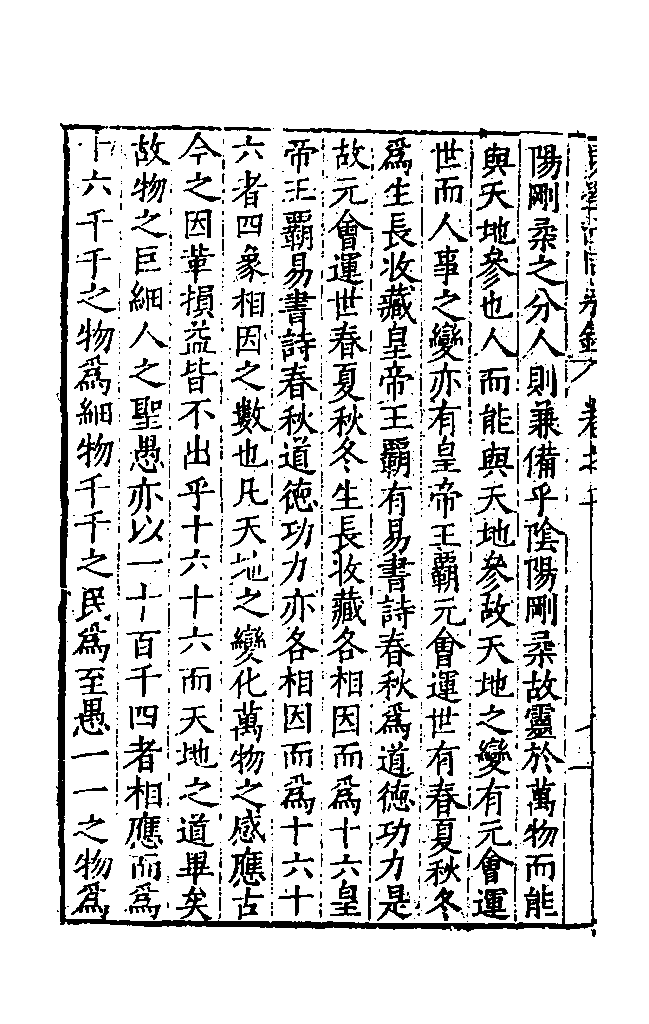 陽剛柔之分人則兼備乎陰陽剛柔故靈於萬物而能
與天地參也人而能與天地參故天地之變有元會運
世而人事之變亦有皇帝王霸元會運世有春夏秋冬
爲生長收藏皇帝王霸有易書詩春秋爲道德功力是
故元會運世春夏秋冬生長收藏各相因而爲十六皇
帝王霸易書詩春秋道德功力亦各相因而爲十六十
六者四象相因之數也凡天地之變化萬物之感應古
今之因革損益皆不出乎十六十六而天地之道畢矣
故物之巨細人之聖愚亦以一十百千四者相應而爲
十六千千之物爲細物千千之民爲至愚一一之物爲